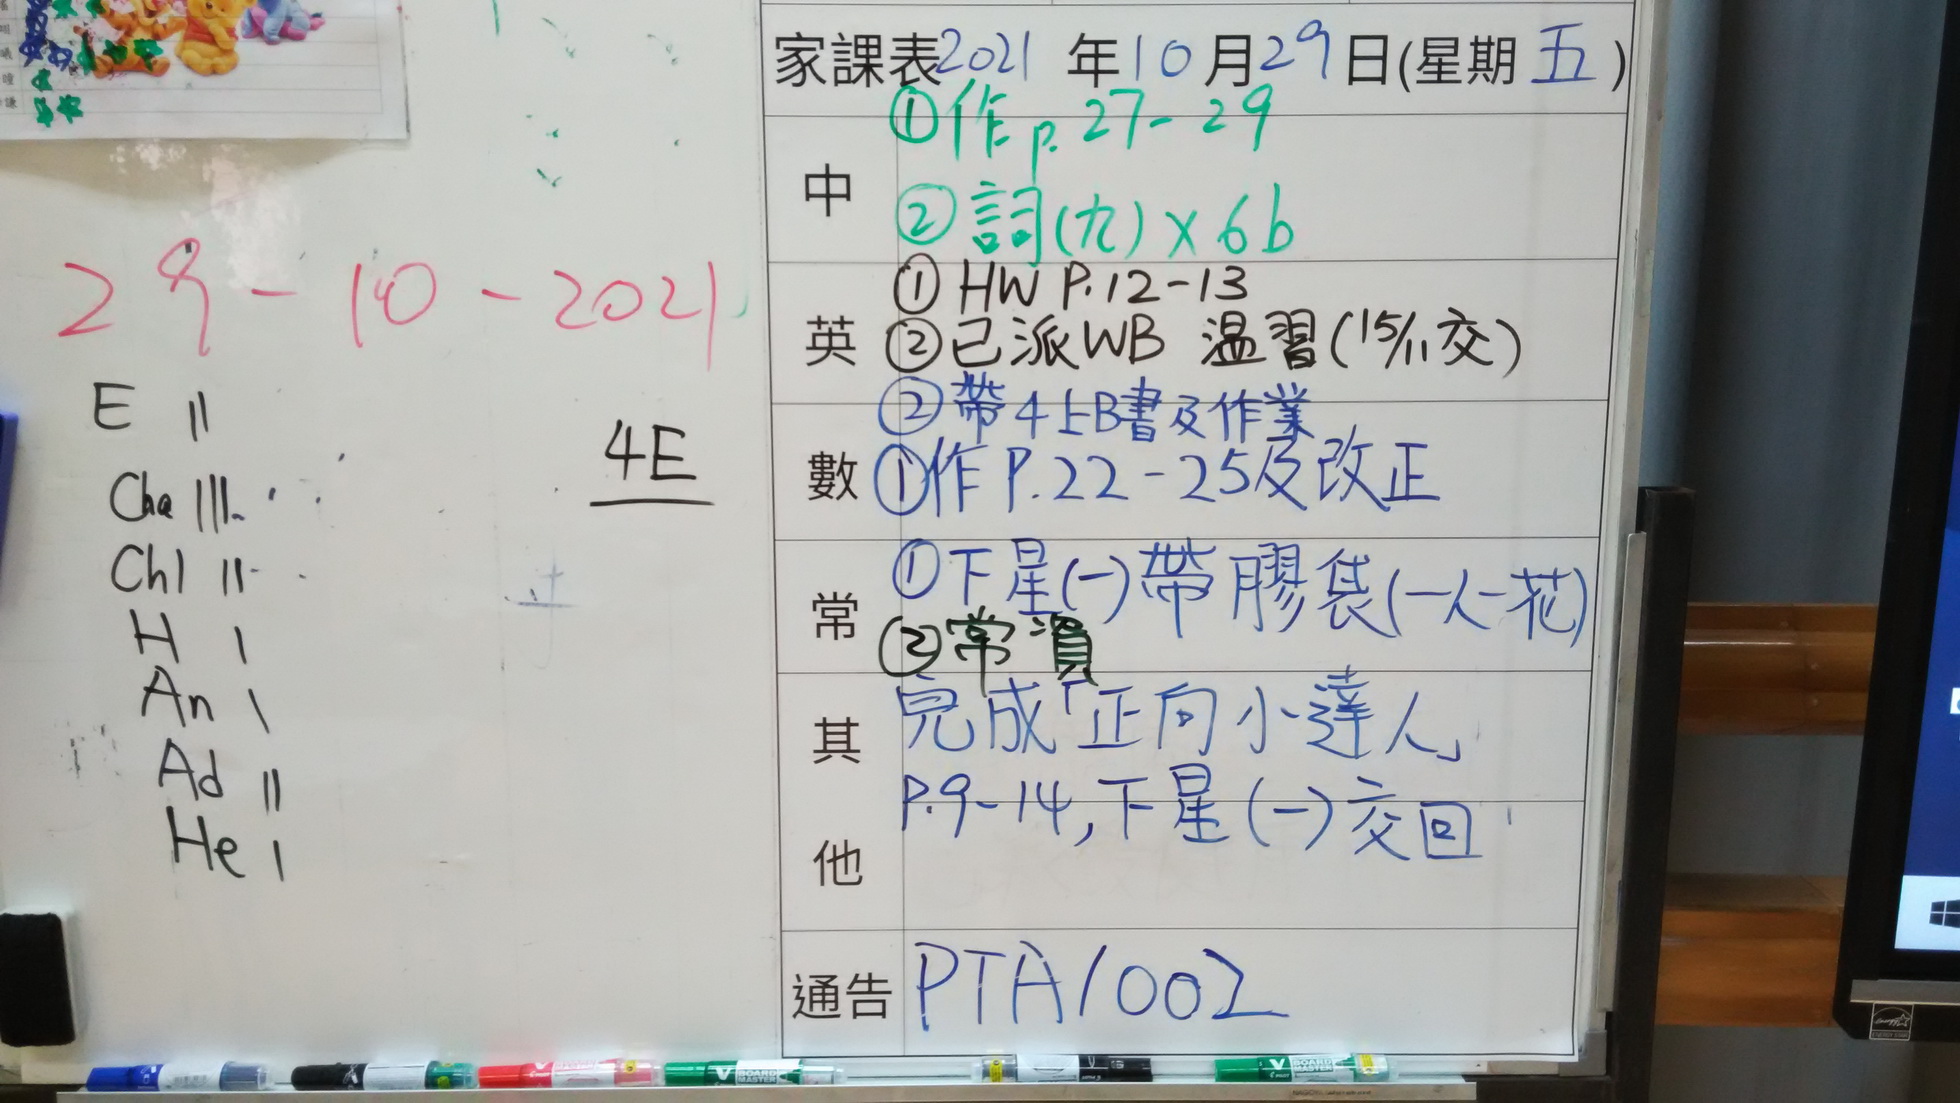 家課表2021年10月29日(星期五)
中
①作p.27-29
②詞(九)x6b
英
①HW P.12-13
②已派WB 温習(15/11交)
數
②帶4上B書及作業
①作P.22-25及改正
常
①下星(一)帶膠袋(一人一花)
②常資
其他
完成「正向小達人」
P.9-14,下星(一)交回
通告
PTA/002
29-10-2021
4E
E ||
Cha |||
Chl ||
H |
An \
Ad ||
He |
V BOARD MASTER
V BOARD MASTER